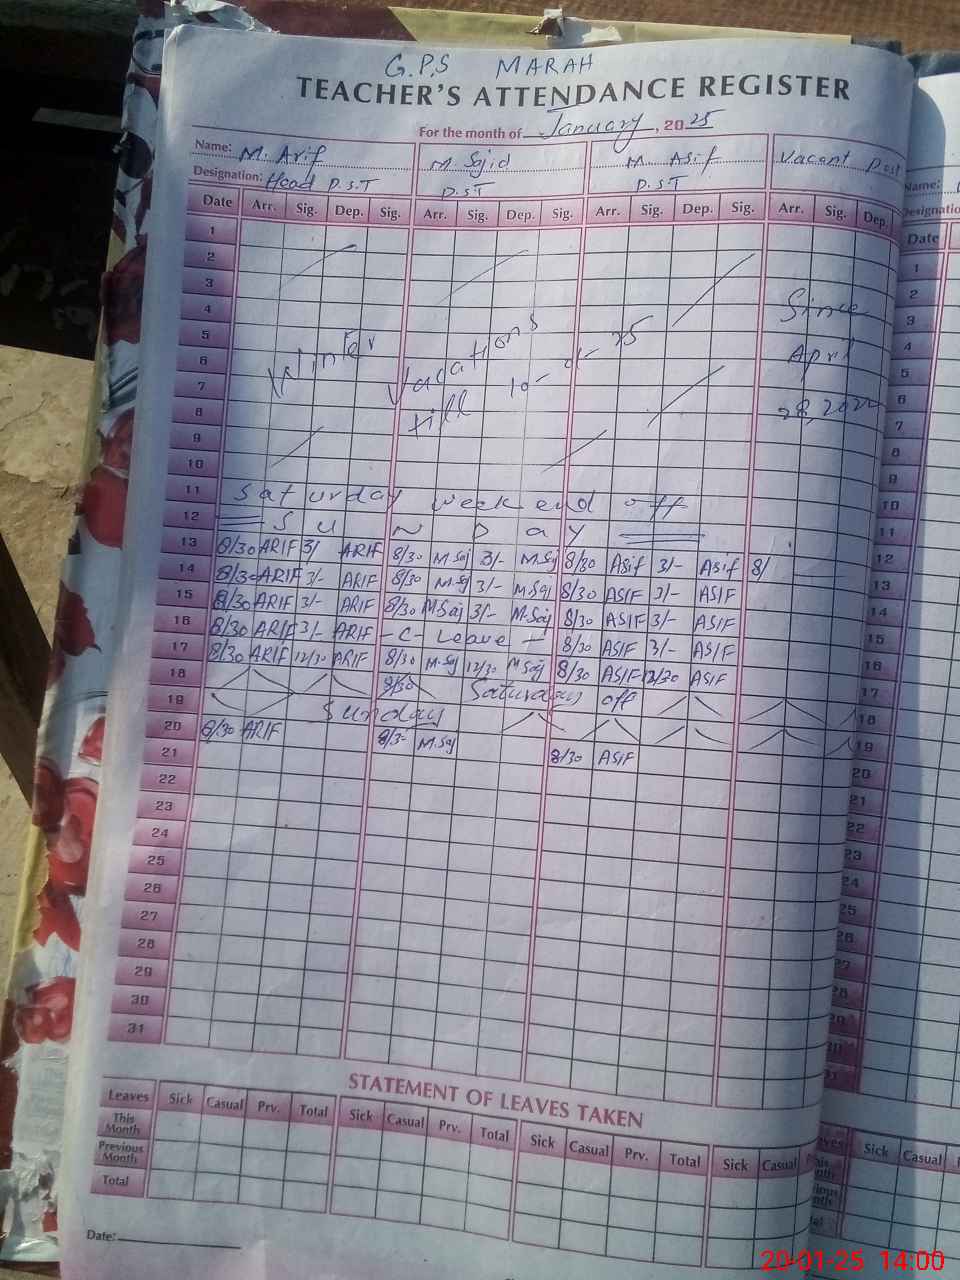 G.P.S MARAH
TEACHER'S ATTENDANCE REGISTER
For the month of January, 2025
Name: M. Arif M. Sajid M. Asif Vacant Post
Designation: Head P.S.T P.S.T P.S.T
Date Arr. Sig. Dep. Sig. Arr. Sig. Dep. Sig. Arr. Sig. Dep. Sig. Arr. Sig. Dep.
1
2
3
4 Since
5
6 Winter Vacations April
7 till 10-
8 28, 2022
9
10
11 Saturday week end off
12 SUNDay
13 8/30 ARIF 3/- ARIF 8/30 M.Saj 3/- M.Saj 8/30 Asif 3/- Asif 8/
14 8/30 ARIF 3/- ARIF 8/30 M.Saj 3/- M.Saj 8/30 ASIF 3/- ASIF
15 8/30 ARIF 3/- ARIF 8/30 M.Saj 3/- M.Saj 8/30 ASIF 3/- ASIF
16 8/30 ARIF 3/- ARIF -C- Leave - 8/30 ASIF 3/- ASIF
17 8/30 ARIF 12/30 ARIF 8/30 M.Saj 12/30 M.Saj 8/30 ASIF 12/30 ASIF
18 8/30 Saturday off
19 Sunday
20 8/30 ARIF 8/3- M.Saj 8/30 ASIF
21
22
23
24
25
26
27
28
29
30
31
STATEMENT OF LEAVES TAKEN
Leaves Sick Casual Prv. Total Sick Casual Prv. Total Sick Casual Prv. Total Sick Casual
This Month
Previous Month
Total
Date:
Name:
Designatio
Date
1
2
3
4
5
6
7
8
9
10
11
12
13
14
15
16
17
18
19
20
21
22
23
24
25
26
27
28
Sick Casual
20-01-25 14:00